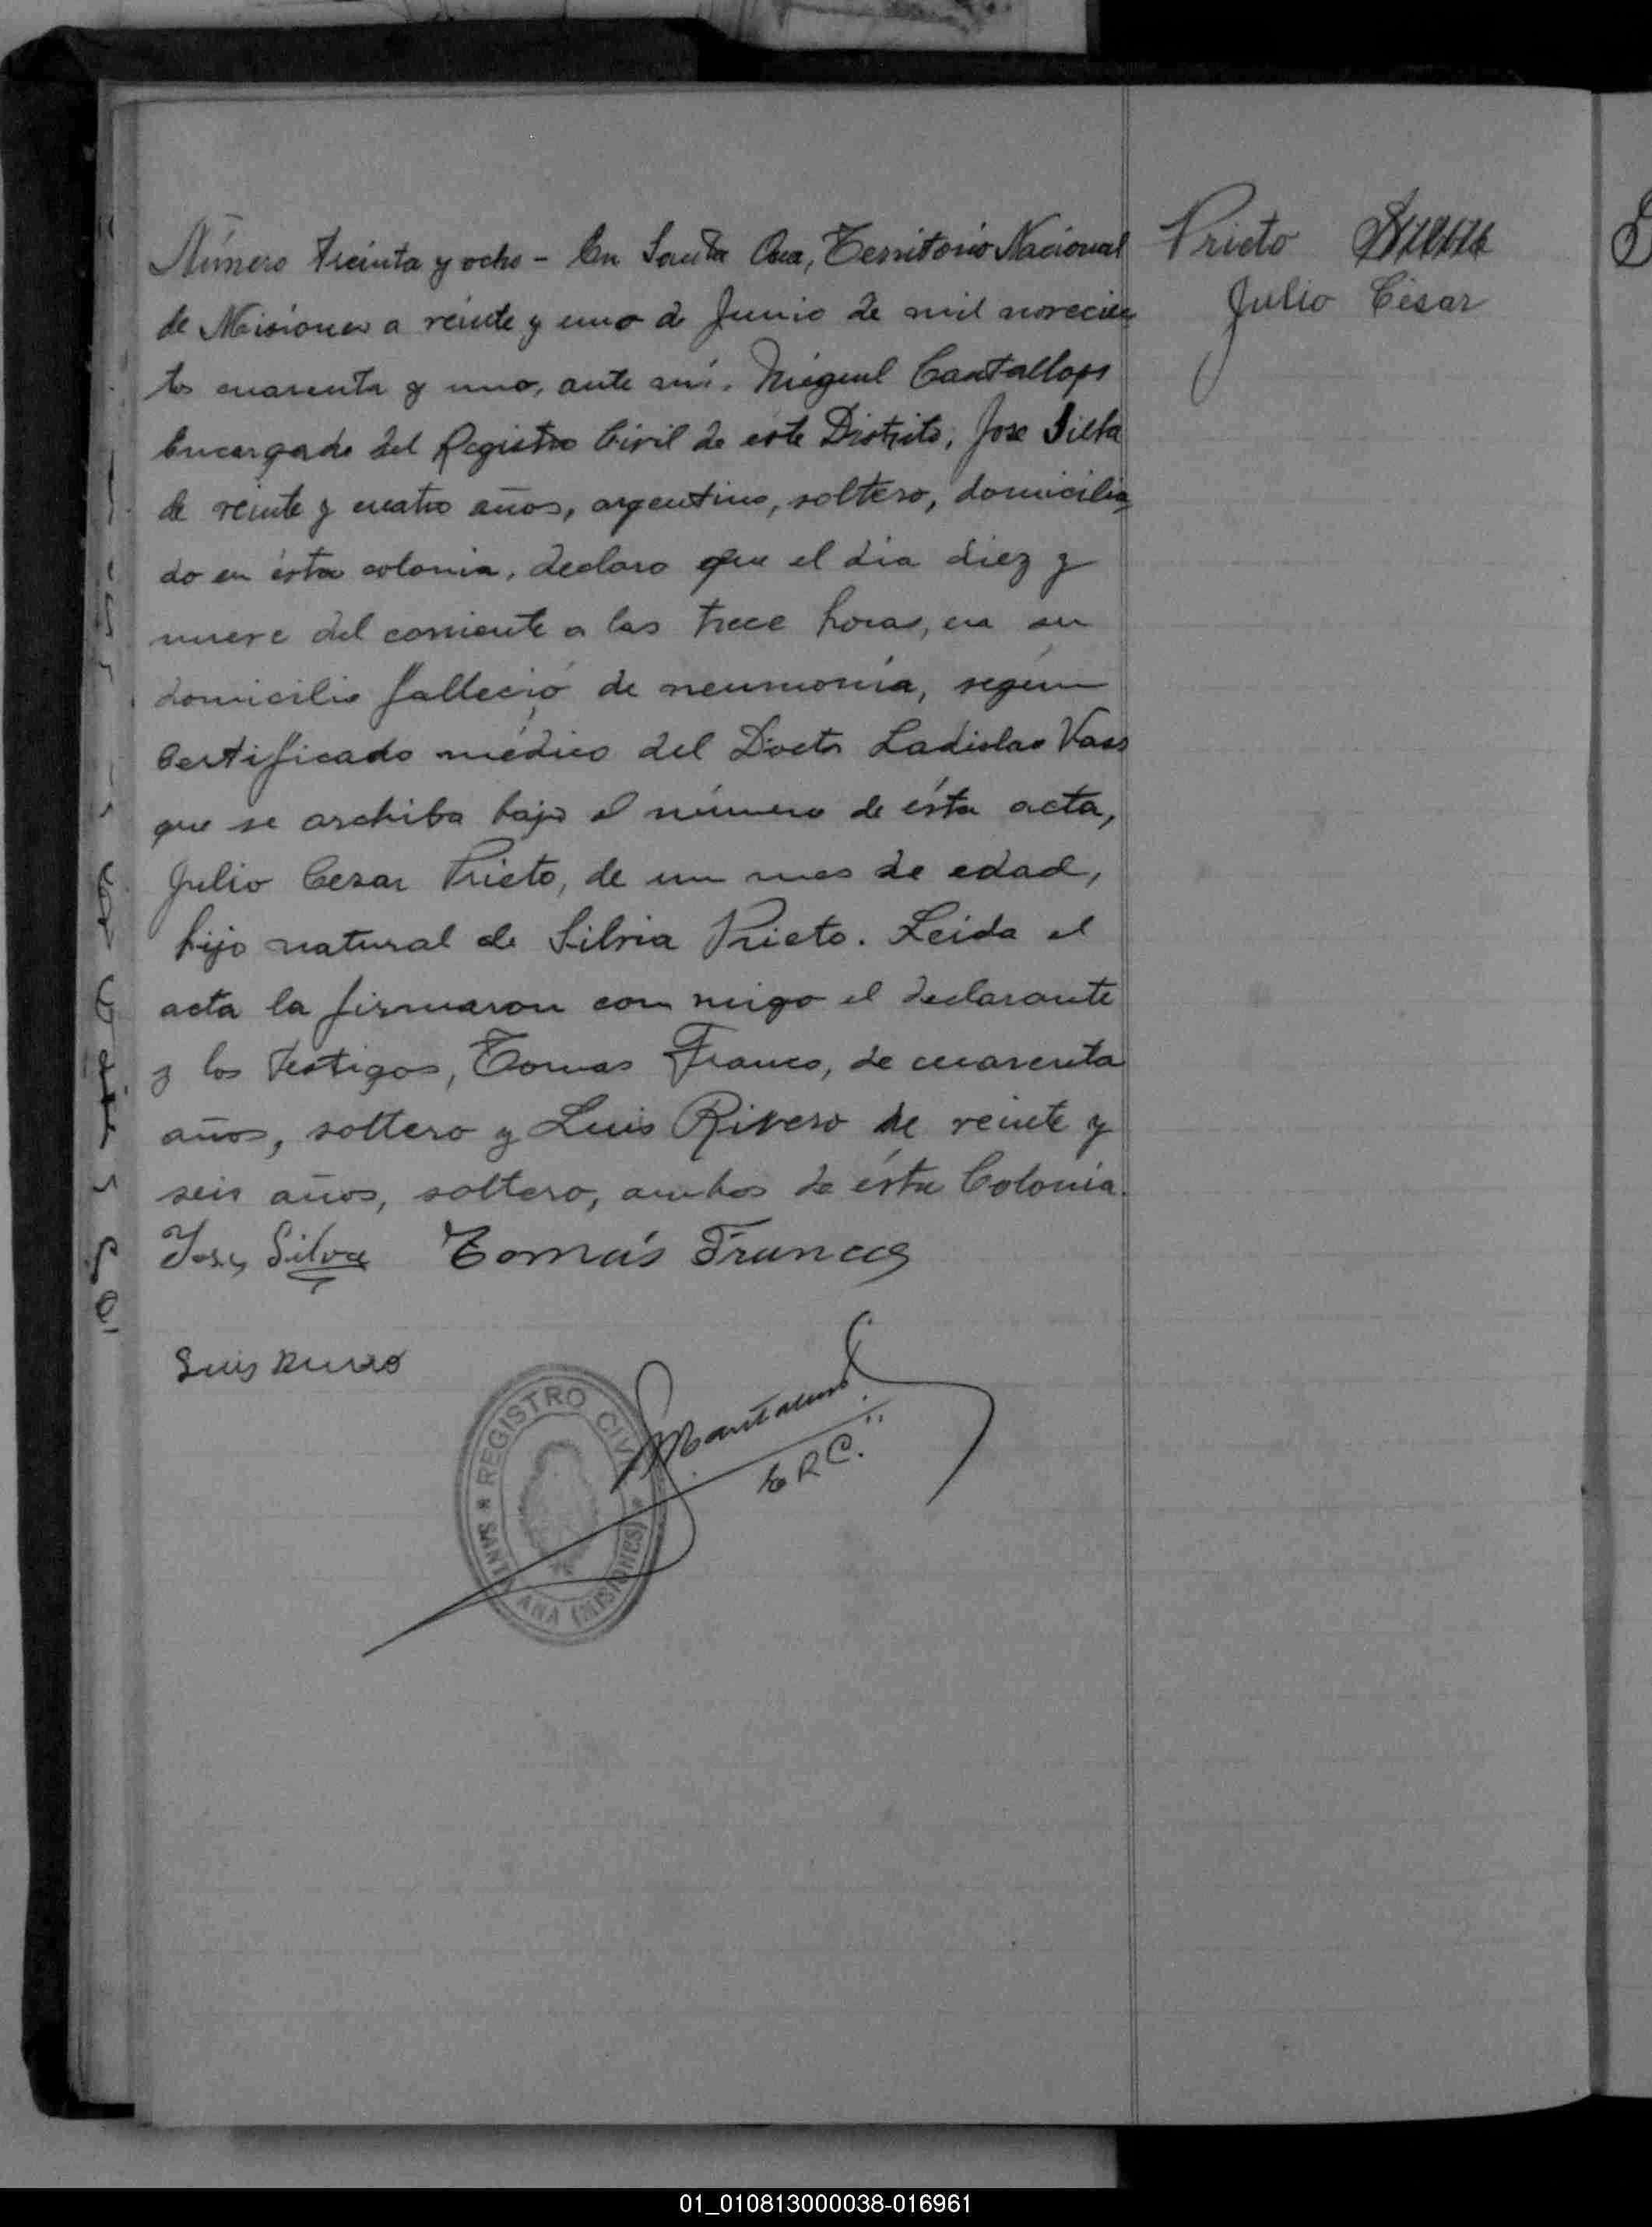 Número treinta y ocho - En Santa Ana, Territorio Nacional
de Misiones a veinte y uno de Junio de mil novecien
tos cuarenta y uno, ante mí, Miguel Cantallops
Encargado del Registro Civil de este Distrito, Jose Silba
de veinte y cuatro años, argentino, soltero, domicilia
do en ésta colonia, declaro que el dia diez y
nueve del corriente a las trece horas, en su
domicilio falleció de neumonía, según
Certificado médico del Doctor Ladislao Vass
que se archiba bajo el número de ésta acta,
Julio Cesar Prieto, de un mes de edad,
hijo natural de Silvia Prieto. Leida el
acta la firmaron con migo el declarante
y los testigos, Tomas Franco, de cuarenta
años, soltero y Luis Rivero de veinte y
seis años, soltero, ambos de ésta Colonia.
Jose Silva Tomás Franco
Luis Rivero
MCantallops
E R C.
REGISTRO CIVIL
* SANTA ANA (MISIONES) *
Prieto
Julio César
01_010813000038-016961